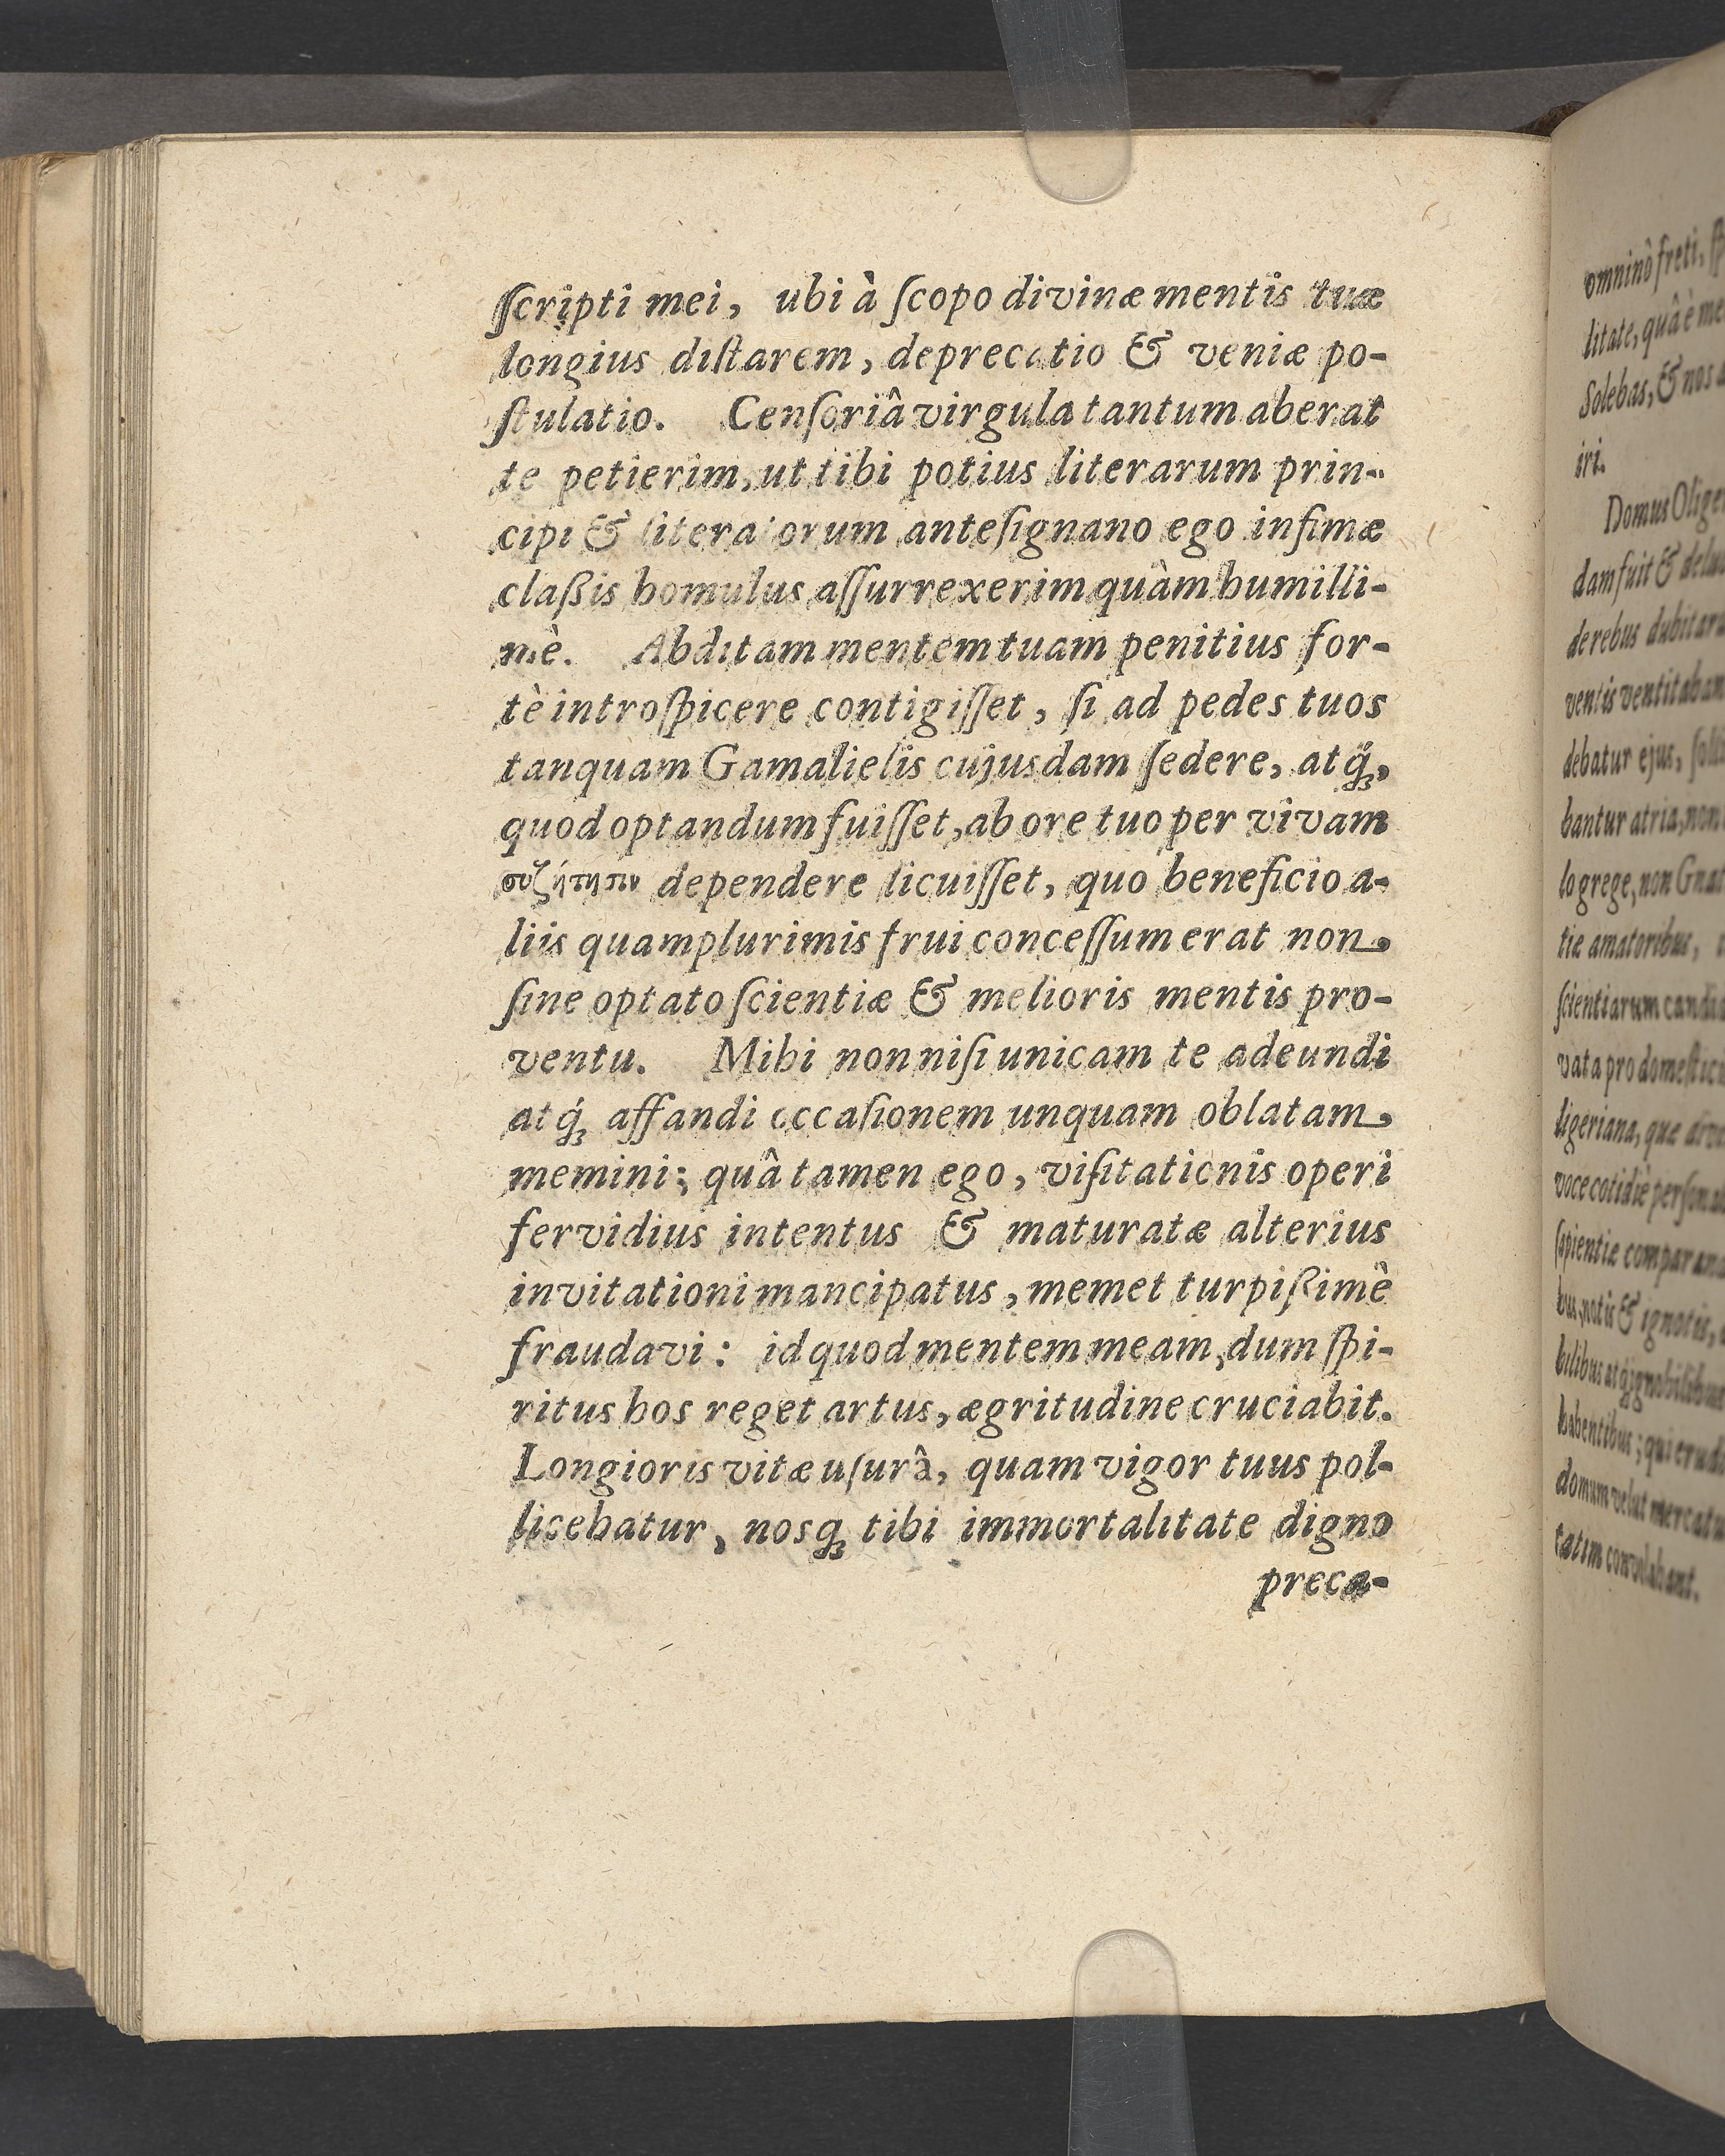 ſcripti mei, ubi à ſcopo divinæ mentis tuæ
longius diſtarem, deprecatio & veniæ po-
ſtulatio. Cenſoriâ virgula tantum aberat
te petierim, ut tibi potius literarum prin-
cipi & literatorum anteſignano ego infimæ
claßis homulus aſſurrexerim quàm humilli-
mè. Abditam mentem tuam penitius for-
tè introſpicere contigiſſet, ſi ad pedes tuos
tanquam Gamalielis cujusdam ſedere, atq́ꝫ,
quod optandum fuiſſet, ab ore tuo per vivam
συζήτησιν dependere licuiſſet, quo beneficio a-
liis quamplurimis frui conceſſum erat non
ſine optato ſcientiæ & melioris mentis pro-
ventu. Mihi non niſi unicam te adeundi
atq́ꝫ affandi occaſionem unquam oblatam,
memini: quâ tamen ego, viſitationis operi
fervidius intentus & maturatæ alterius
invitationi mancipatus, memet turpißimè
fraudavi: id quod mentem meam, dum ſpi-
ritus hos reget artus, ægritudine cruciabit.
Longioris vitæ uſurâ, quam vigor tuus pol-
licebatur, nosqꝫ tibi immortalitate digno
preca-
omninò freti,
litate, quâ è
Solebas, & nos
iri.
Domus
dam fuit &
de rebus
ventis
debatur ejus,
bantur atria, non
lo grege, non
tiæ amatoribus,
ſcientiarum
vata pro
ligeriana, quæ
voce cotidiè
ſapientiæ
bus, notis & ignotis,
bilibus
habentibus; qui
domum velut
tatim convolabant.